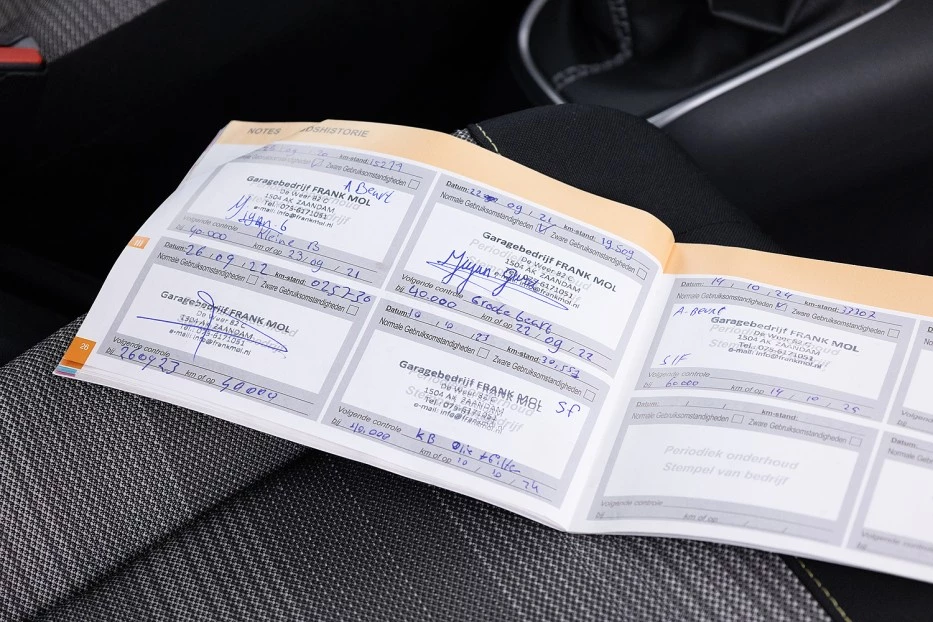 NOTES
DSHISTORIE
km-stand: 15279
Zware Gebruiksomstandigheden
A Beurt
Garagebedrijf FRANK MOL
De Weer 82 C
1504 AK ZAANDAM
Tel.: 075-6171051
e-mail: info@frankmol.nl
Volgende controle Kleine B
bij 40.000 km of op 23 / 09 / 21
Datum: 26 / 09 / 22 km-stand: 025730
Normale Gebruiksomstandigheden Zware Gebruiksomstandigheden
Garagebedrijf FRANK MOL
De Weer 82 C
1504 AK ZAANDAM
Tel.: 075-6171051
e-mail: info@frankmol.nl
Volgende controle
bij 260923 km of op 40000
26
Datum: 22 / 09 / 21 km-stand: 19509
Normale Gebruiksomstandigheden Zware Gebruiksomstandigheden
Garagebedrijf FRANK MOL
De Weer 82 C
1504 AK ZAANDAM
Tel.: 075-6171051
e-mail: info@frankmol.nl
Volgende controle Groote beurt
bij 40.000 km of op 22 / 09 / 22
Datum: 10 / 10 / 23 km-stand: 30,551
Normale Gebruiksomstandigheden Zware Gebruiksomstandigheden
Garagebedrijf FRANK MOL
De Weer 82 C
1504 AK ZAANDAM
Tel.: 075-6171051
e-mail: info@frankmol.nl
SF
Volgende controle KB Olie + Filter
bij 40.000 km of op 10 / 10 / 24
Datum: 14 / 10 / 24 km-stand: 37707
Normale Gebruiksomstandigheden Zware Gebruiksomstandigheden
A. Beurt
Garagebedrijf FRANK MOL
De Weer 82 C
1504 AK ZAANDAM
Tel.: 075-6171051
e-mail: info@frankmol.nl
SIF
Volgende controle
bij 60000 km of op 14 / 10 / 25
Datum: / / km-stand:
Normale Gebruiksomstandigheden Zware Gebruiksomstandigheden
Periodiek onderhoud
Stempel van bedrijf
Volgende controle
bij km of op / /
Datum:
Volgende controle
bij